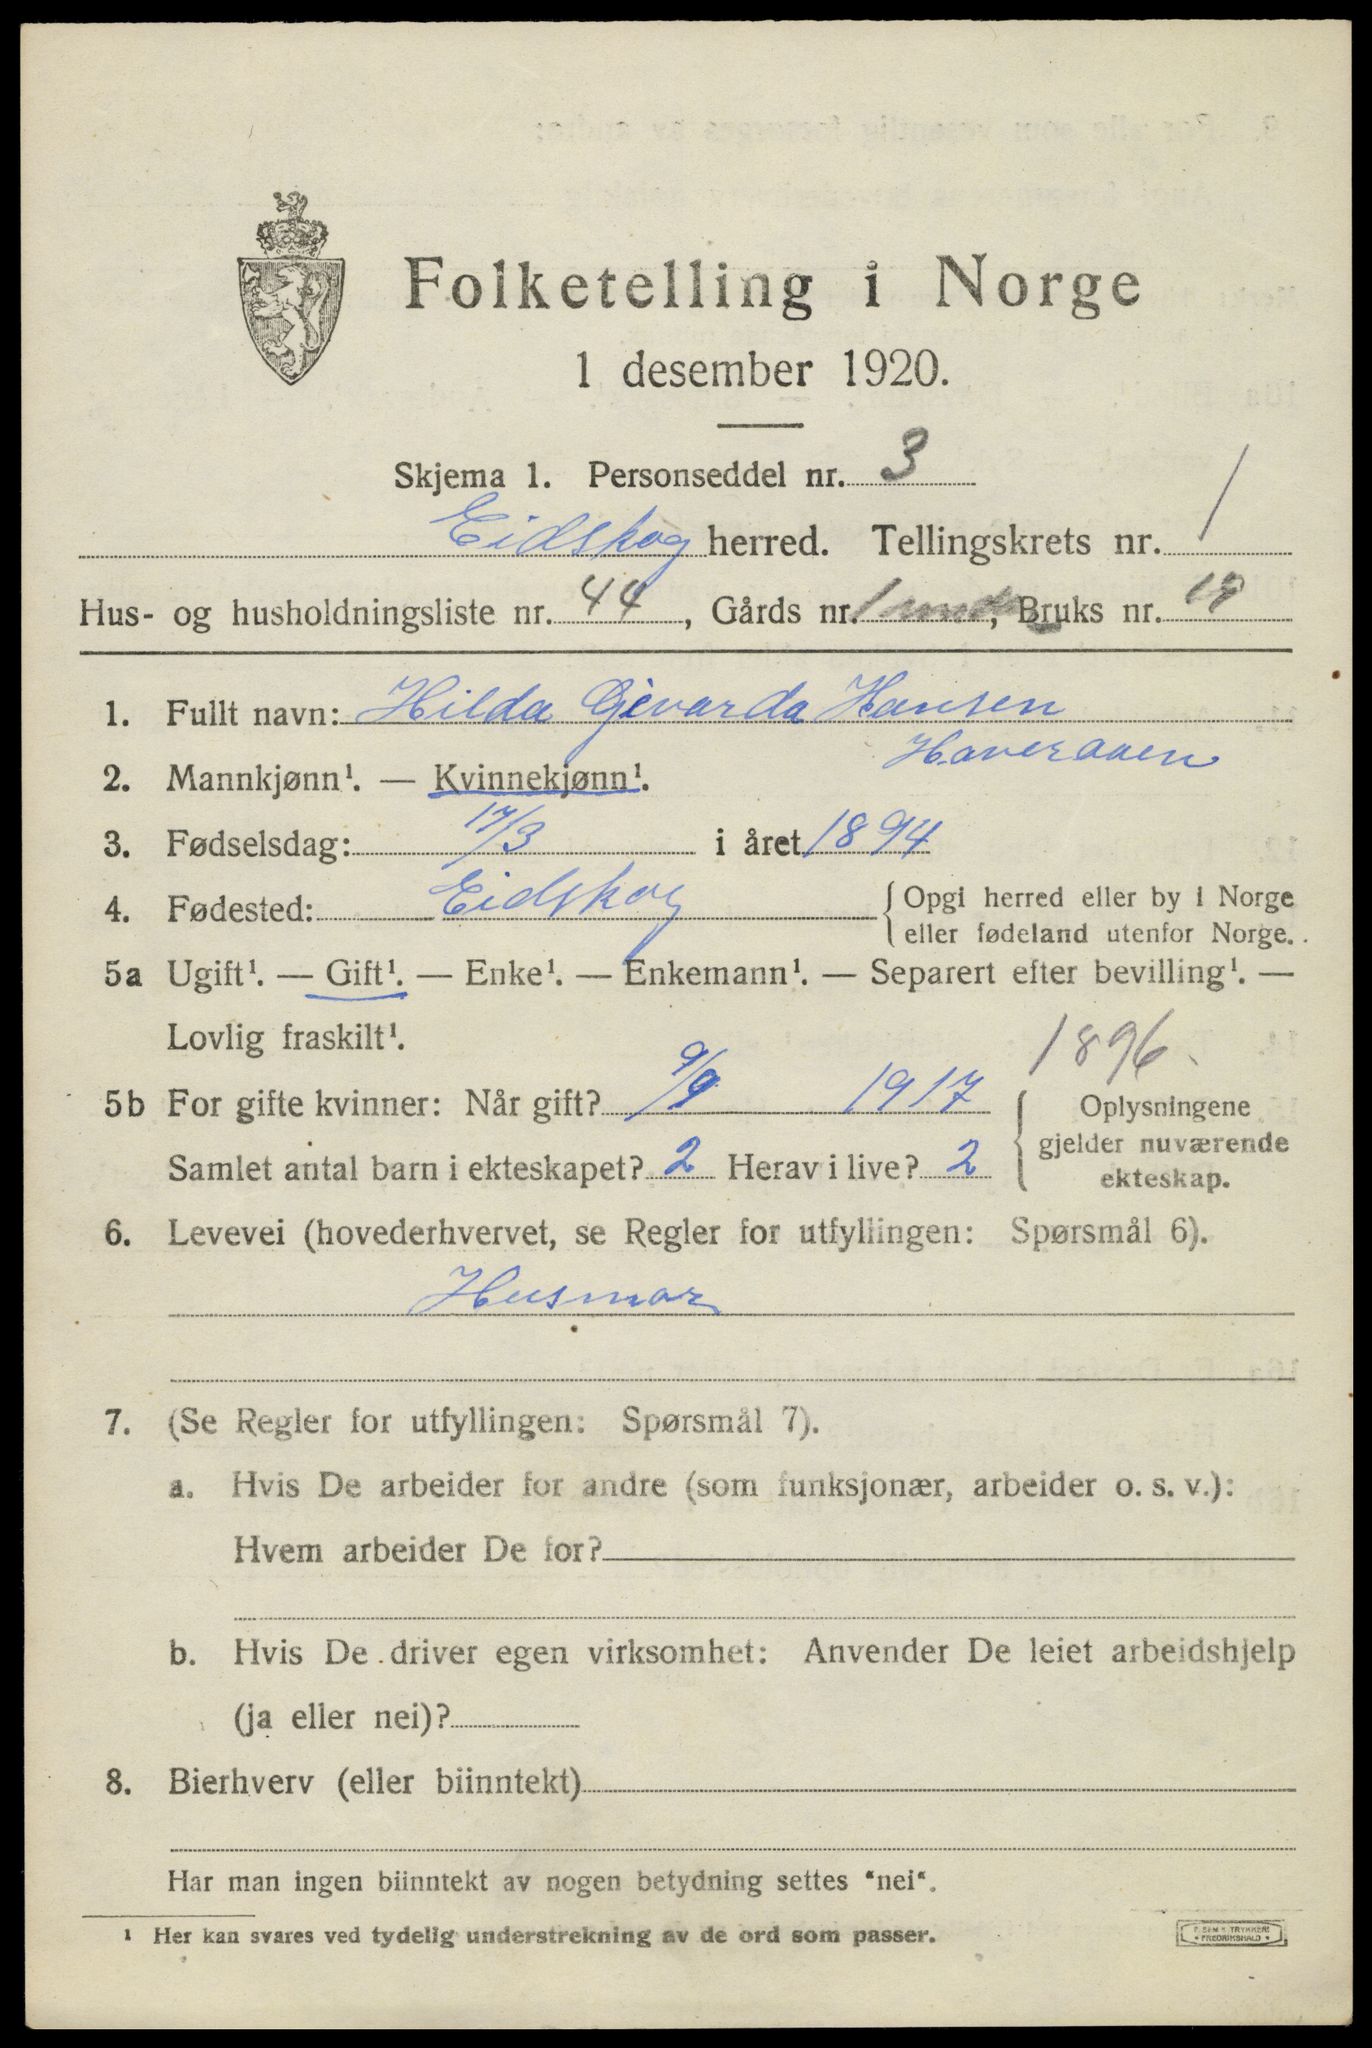 Folketelling i Norge
1 desember 1920.
Skjema 1. Personseddel nr. 3
Eidskog herred. Tellingskrets nr. 1
Hus- og husholdningsliste nr. 44, Gårds nr. Bruks nr. 19
1. Fullt navn: Hilda Gjevarda Hansen
Haveraaen
2. Mannkjønn¹. — Kvinnekjønn¹.
3. Fødselsdag: 17/3 i året 1894
4. Fødested: Eidskog { Opgi herred eller by i Norge
eller fødeland utenfor Norge.
5a Ugift¹. — Gift¹. — Enke¹. — Enkemann¹. — Separert efter bevilling¹. —
Lovlig fraskilt¹.
1896.
5b For gifte kvinner: Når gift? 9/9 1917 { Oplysningene
gjelder nuværende
Samlet antal barn i ekteskapet? 2 Herav i live? 2
ekteskap.
6. Levevei (hovederhvervet, se Regler for utfyllingen: Spørsmål 6).
Husmor
7. (Se Regler for utfyllingen: Spørsmål 7).
a. Hvis De arbeider for andre (som funksjonær, arbeider o. s. v.):
Hvem arbeider De for?
b. Hvis De driver egen virksomhet: Anvender De leiet arbeidshjelp
(ja eller nei)?
8. Bierhverv (eller biinntekt)
Har man ingen biinntekt av nogen betydning settes "nei".
¹ Her kan svares ved tydelig understrekning av de ord som passer.
TRYKKERI
FREDRIKSHALD